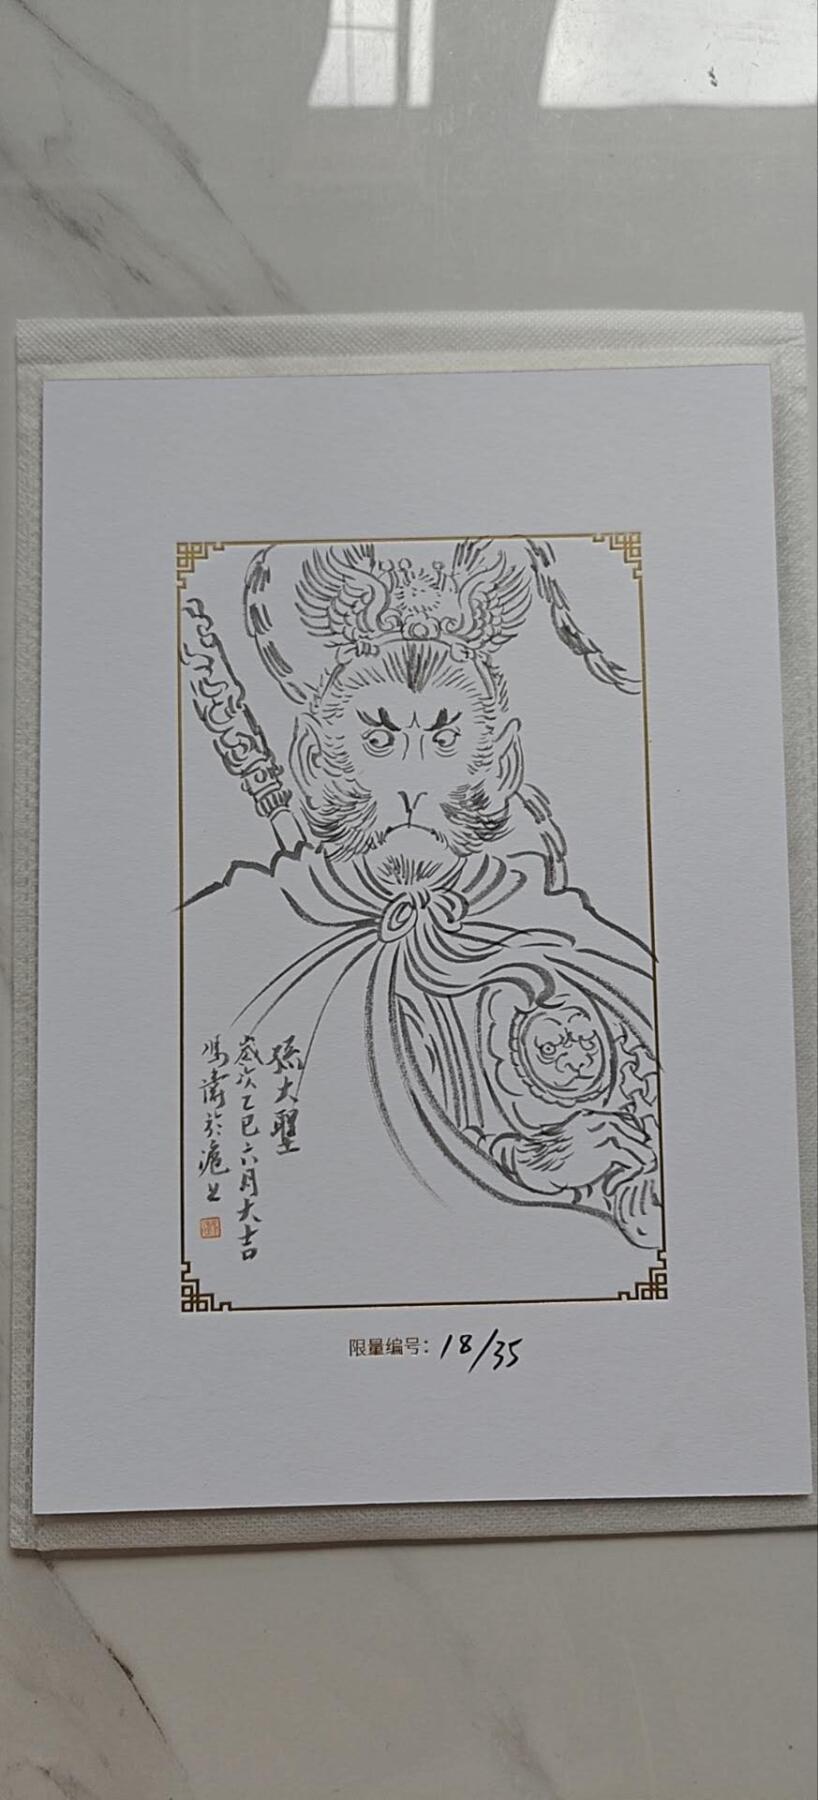 孫大聖
歲次乙巳六月大吉
馮濤於滬上
限量编号：18/35